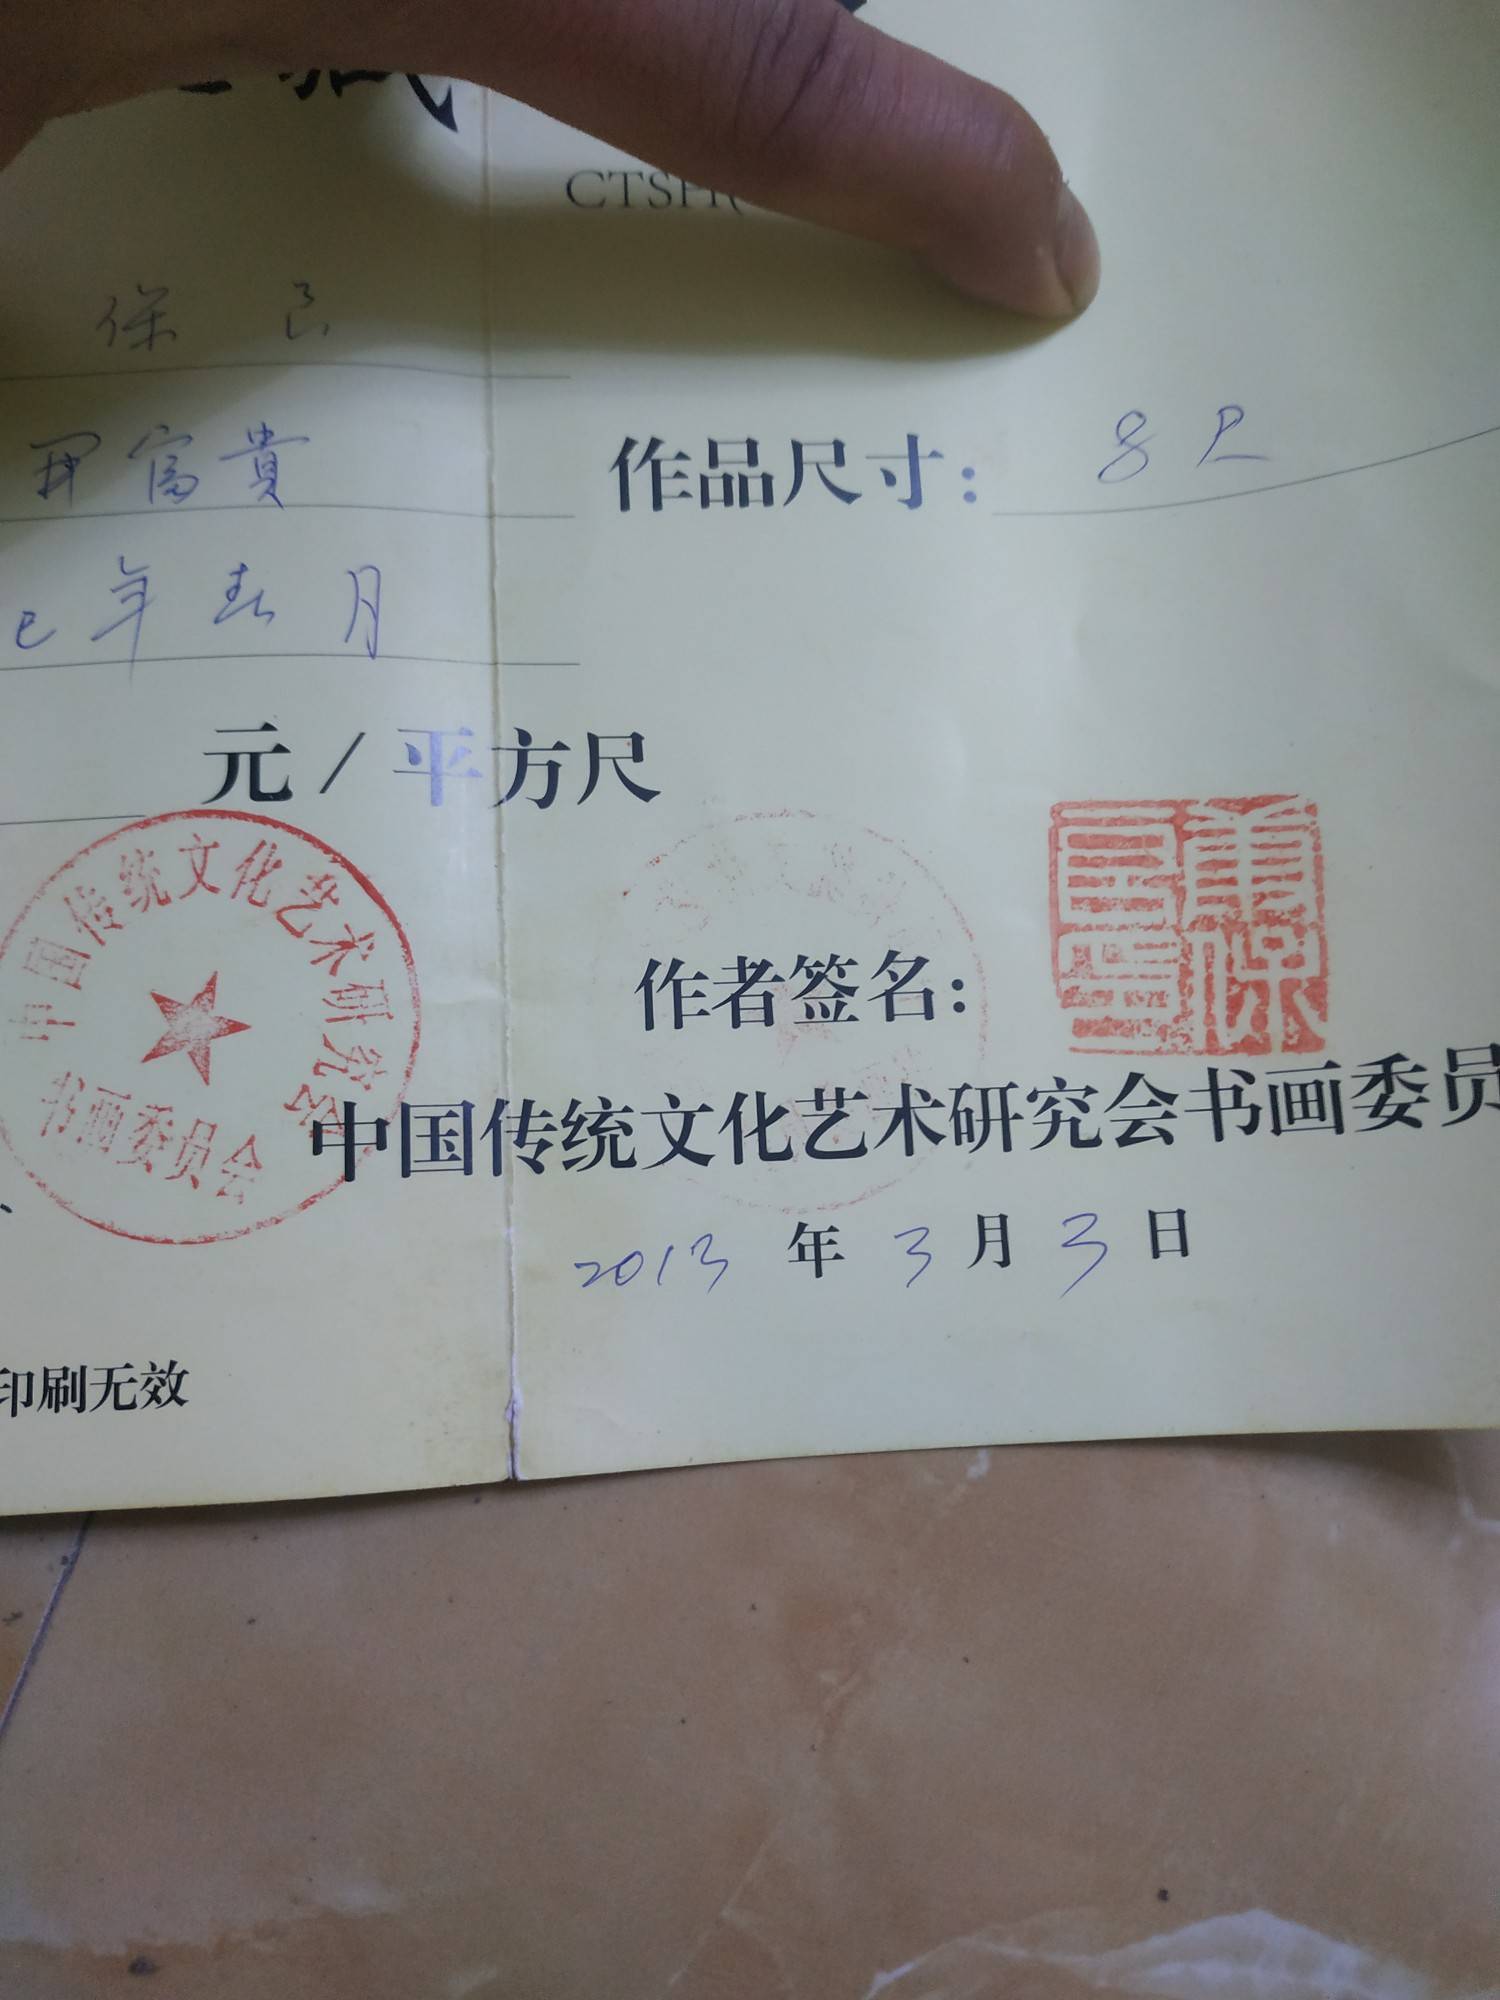 CTSP
保良
开富貴
作品尺寸: 8尺
巳年春月
元/平方尺
中国传统文化艺术研究会
书画委员会
作者签名:
中国传统文化艺术研究会书画委员
2013年3月3日
印刷无效